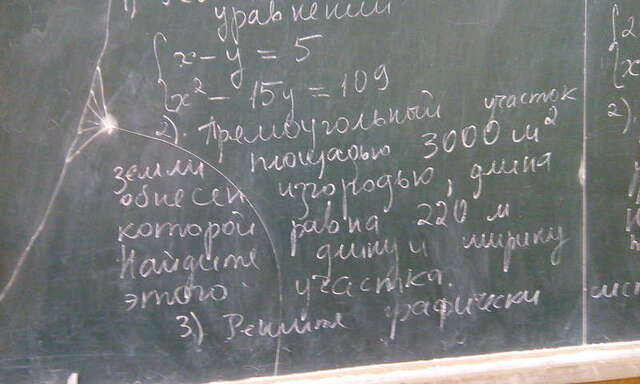 уравнений
x - y = 5
x² - 15y = 109
2). Прямоугольный участок
земли площадью 3000 м²
обнесен изгородью, длина
которой равна 220 м
Найдите длину и ширину
этого участка.
3) Решите графически
2).